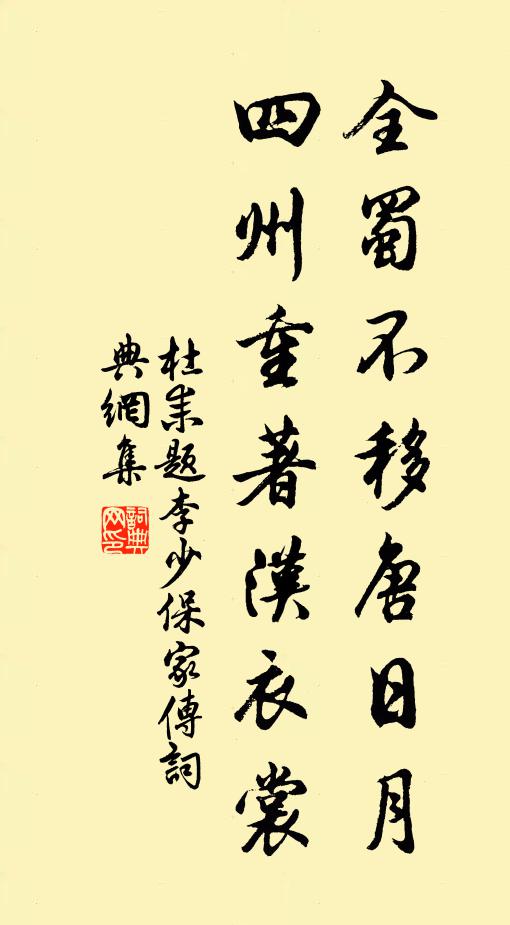 全蜀不移唐日月
四州重著漢衣裳
杜耒題李少保家傳詞
典網集
詞典網印